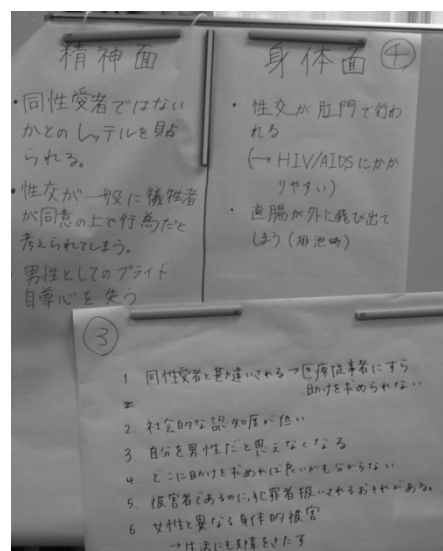 精神面
・同性愛者ではない
かとのレッテルを貼
られる。
・性交が一般に犠牲者
が同意の上で行為だと
考えられてしまう。
・男性としてのプライド
自尊心を失う
身体面 ④
・性交が肛門で行わ
れる
(→ HIV/AIDSにかか
りやすい)
・直腸が外に飛び出て
しまう(排泄時)
③
1. 同性愛者と勘違いされる→医療従事者にすら
助けを求められない
2. 社会的な認知度が低い
3. 自分を男性だと思えなくなる
4. どこに助けを求めれば良いかも分からない
5. 被害者であるのに、犯罪者扱いされるおそれがある。
6 女性と異なる身体的被害
→生活にも支障をきたす